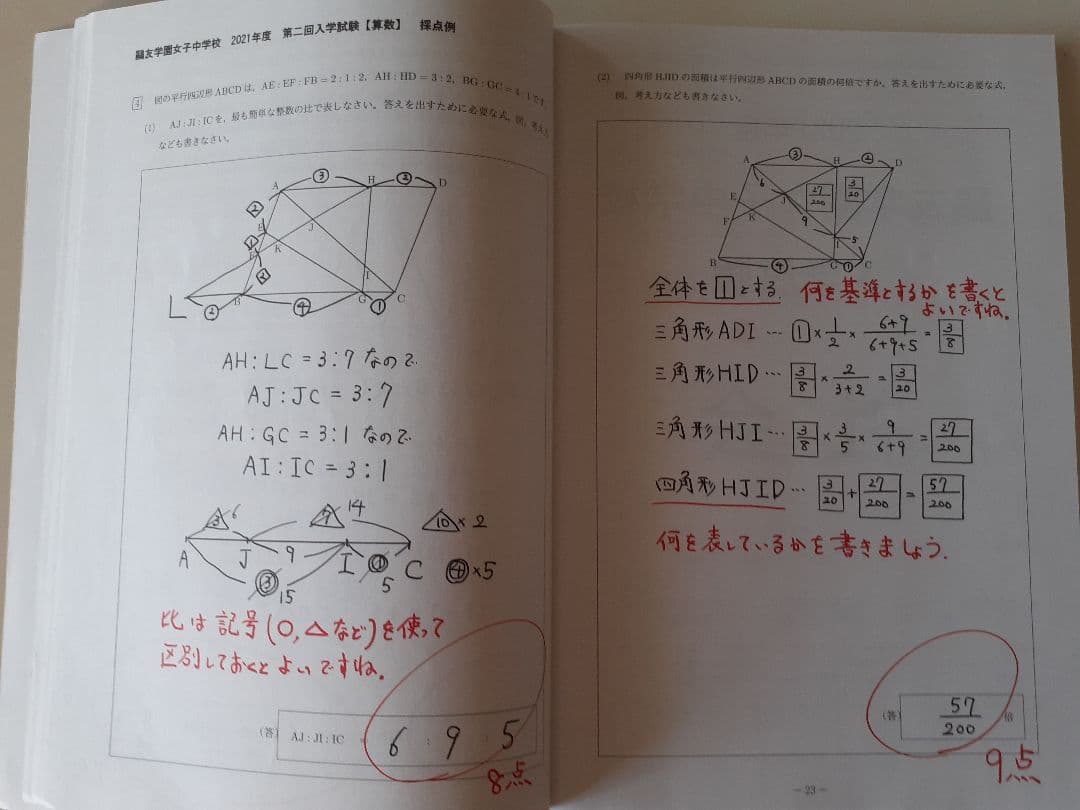 鷗友学園女子中学校 2021年度 第二回入学試験【算数】 採点例
4 図の平行四辺形ABCDは、AE:EF:FB=2:1:2, AH:HD=3:2, BG:GC=4:1です。
(1) AJ:JI:ICを、最も簡単な整数の比で表しなさい。答えを出すために必要な式、図、考え方
なども書きなさい。
③ ②
A H D
2
E J
1
F K
2
I
L ② B ④ G ① C
AH:LC=3:7なので
AJ:JC=3:7
AH:GC=3:1なので
AI:IC=3:1
3 6 7 14 10×2
A J 9 I ① C ④×5
③ 15 5
比は記号(○,△など)を使って
区別しておくとよいですね。
(答) AJ:JI:IC 6 : 9 : 5
8点
(2) 四角形HJIDの面積は平行四辺形ABCDの面積の何倍ですか。答えを出すために必要な式、
図、考え方なども書きなさい。
③ ②
A H D
6 27/200 3/20
E J
F K 9
I 5
B ④ G ① C
全体を1とする. 何を基準とするかを書くと
よいですね。
三角形ADI… 1×1/2×6+9/6+9+5=3/8
三角形HID… 3/8×2/3+2=3/20
三角形HJI… 3/8×3/5×9/6+9=27/200
四角形HJID… 3/20+27/200=57/200
何を表しているかを書きましょう.
(答) 57/200 倍
9点
― 23 ―